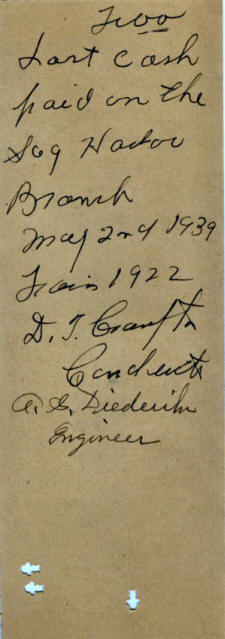 Two
Last Cash
paid on the
Sag Harbor
Branch
May 2nd 1939
Train 1922
D. T.
Conductor
A. G. Diederich
Engineer